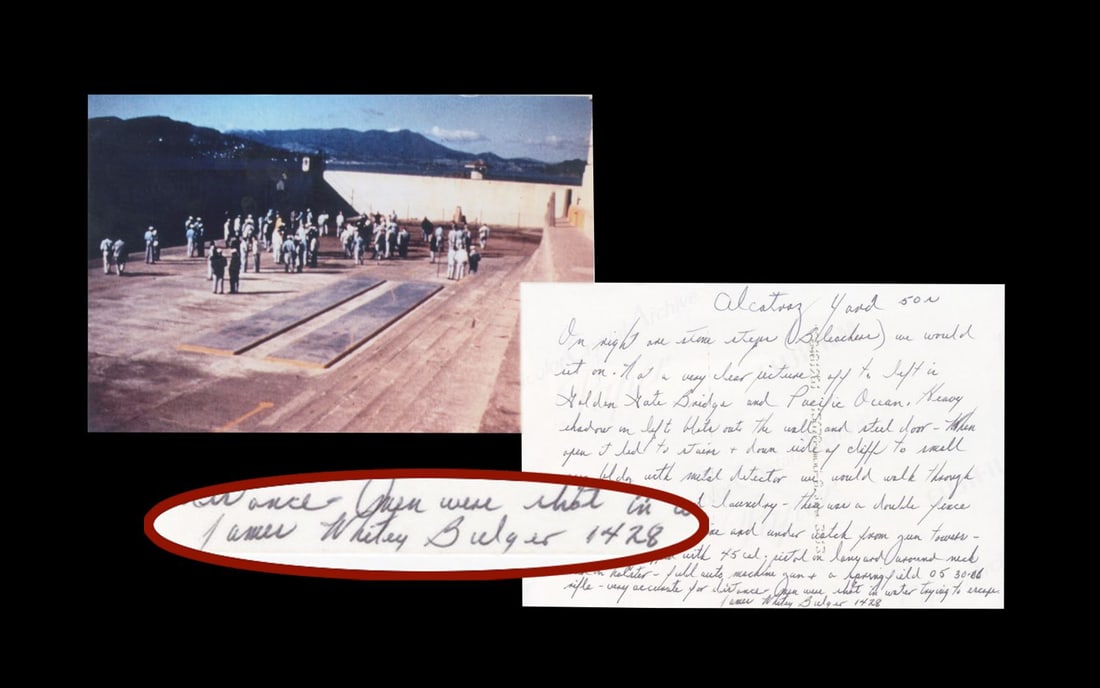 Alcatraz Yard
On right are stone steps (Bleachers) we would
sit on. a very clear picture off to left is
Golden Gate Bridge and Pacific Ocean. Heavy
shadow on left blots out the wall and steel door - When
open it led to stairs + down side of cliff to small
bldg with metal detector we would walk through
laundry - there was a double fence
and under watch from gun towers -
with 45 cal. pistol on lanyard around neck
in holster - full auto machine gun + a Springfield 05 30-06
rifle - very accurate for distance. Men were shot in water trying to escape.
James Whitey Bulger 1428
Men were shot in
James Whitey Bulger 1428